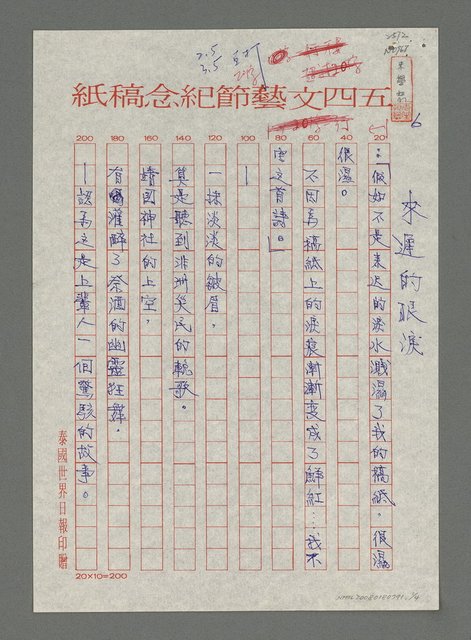 五四文藝節紀念稿紙
來遲的眼淚
20
「假如不是來遲的淚水濺濕了我的稿紙。很濕
40
很濕。
60
不因為稿紙上的淚痕漸漸變成了鮮紅……我不
80
寫這首詩。」
100
—
120
一抹淡淡的皺眉,
140
算是聽到非洲災民的輓歌。
160
靖國神社的上空,
180
有灌醉了祭酒的幽靈狂舞。
200
—誤為這是上輩人一個驚駭的故事。
20×10=200
泰國世界日報印贈